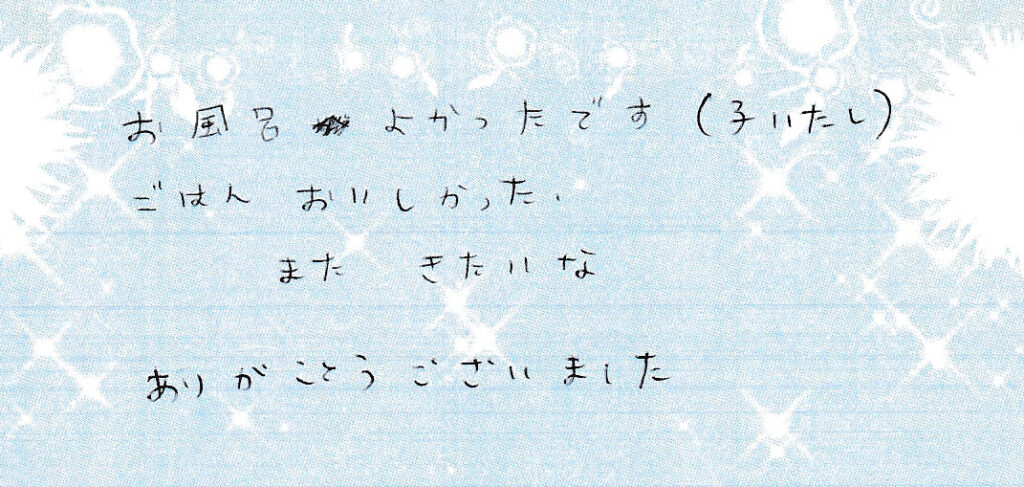 お風呂 よかったです (子いたし)
ごはん おいしかった.
また きたいな
ありがことうございました